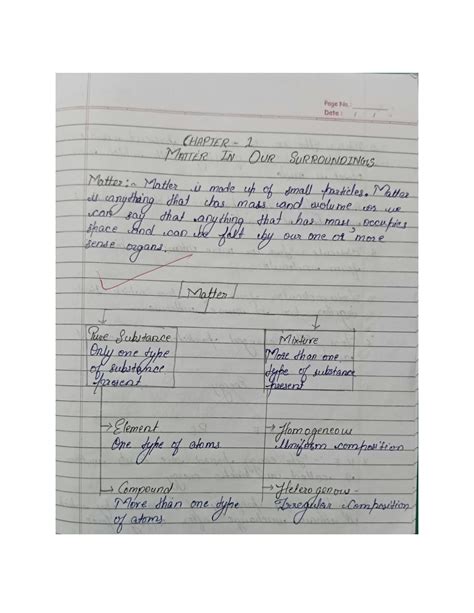 Page No.:
Date: / /
CHAPTER - 1
MATTER IN OUR SURROUNDINGS
Matter:- Matter is made up of small particles. Matter
is anything that has mass and volume or we
can say that anything that has mass, occupies
space and can be felt by our one or more
sense organs.
Matter
Pure Substance
Only one type
of substance
Present
Mixture
More than one
type of substance
present
→ Element
One type of atoms
→ Homogeneous
Uniform composition
→ Compound
More than one type
of atoms
→ Heterogenous -
Irregular Composition